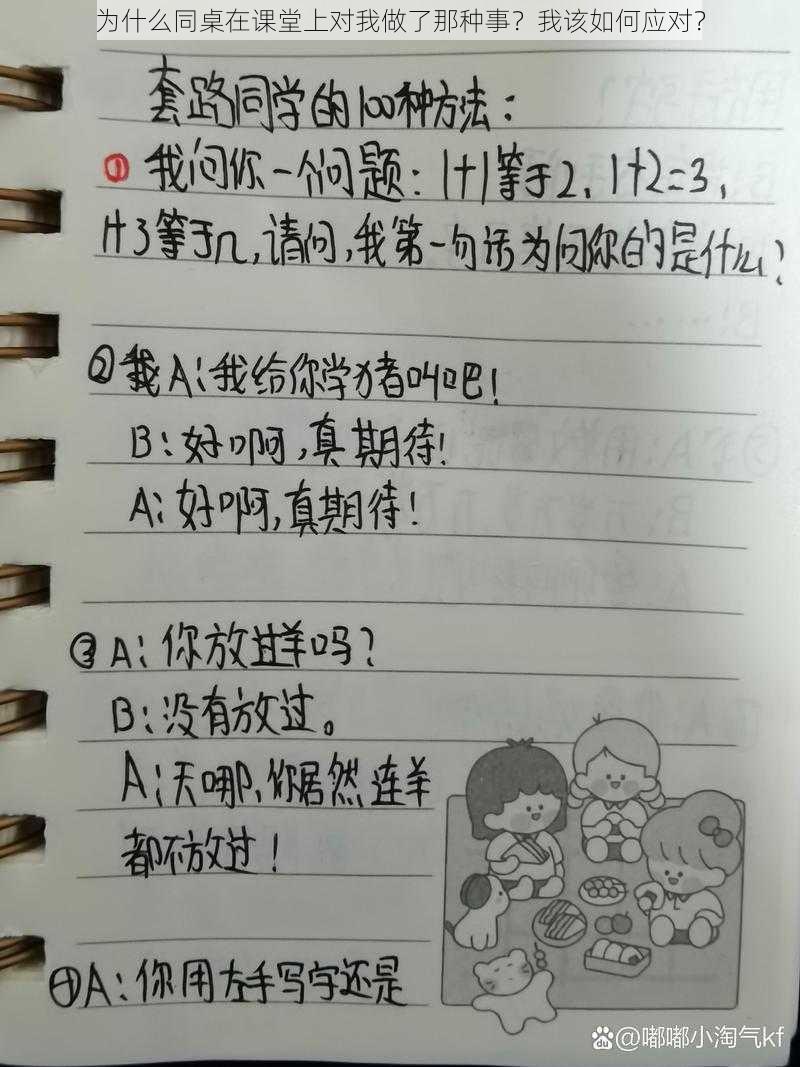 为什么同桌在课堂上对我做了那种事？我该如何应对？
套路同学的100种方法：
①我问你一个问题：1+1等于2、1+2=3，
1+3等于几，请问，我第一句话为问你的是什么？
②我A：我给你学猪叫吧！
B：好啊，真期待！
A：好啊，真期待！
③A：你放过羊吗？
B：没有放过。
A：天哪、你居然连羊
都不放过！
④A：你用左手写字还是
@嘟嘟小淘气kf